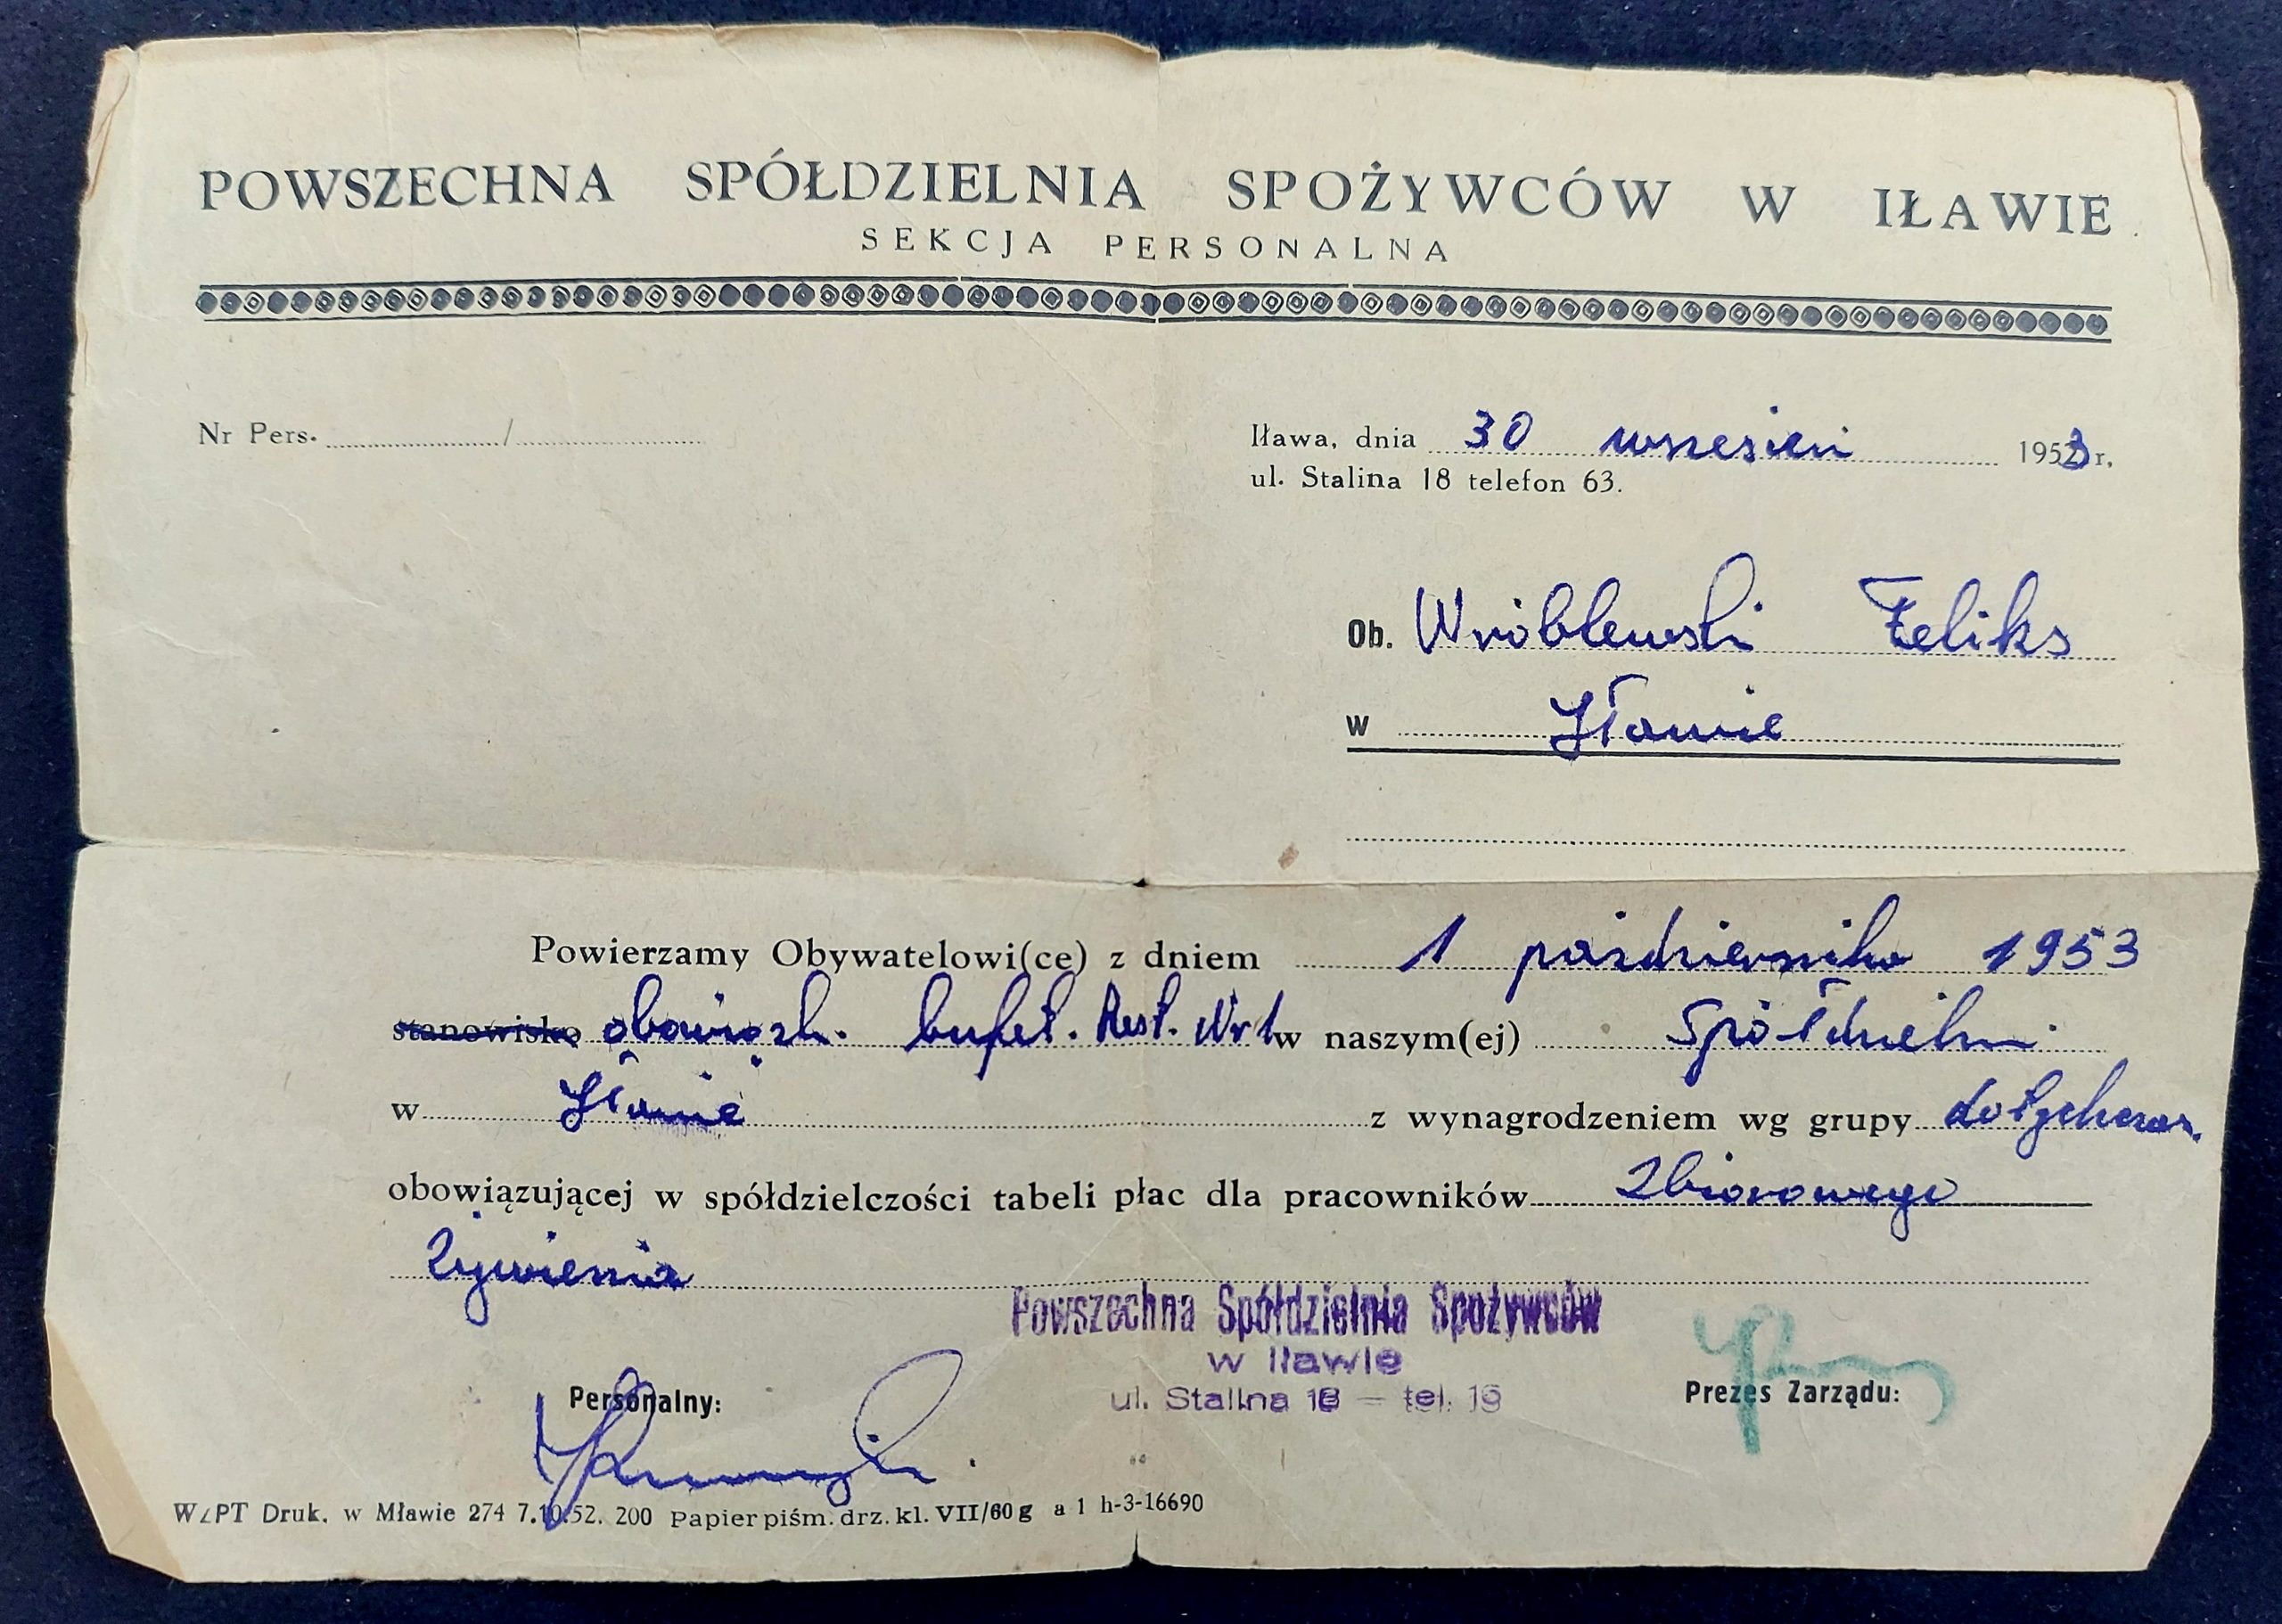 POWSZECHNA SPÓŁDZIELNIA SPOŻYWCÓW W IŁAWIE
SEKCJA PERSONALNA
Nr Pers. /
Iława, dnia 30 wrzesień 1953 r.
ul. Stalina 18 telefon 63.
Ob. Wróblewski Feliks
w Iławie
Powierzamy Obywatelowi(ce) z dniem 1 października 1953
stanowisko obowiązk. bufet. Rest. Nr 1 w naszym(ej) Spółdzielni
w Iławie z wynagrodzeniem wg grupy dotychczas.
obowiązującej w spółdzielczości tabeli płac dla pracowników Zbiorowego
Żywienia
Powszechna Spółdzielnia Spożywców
w Iławie
ul. Stalina 18 — tel. 19
Personalny:
Prezes Zarządu:
WZPT Druk. w Mławie 274 7.10.52. 200 Papier piśm. drz. kl. VII/60 g a 1 h-3-16690